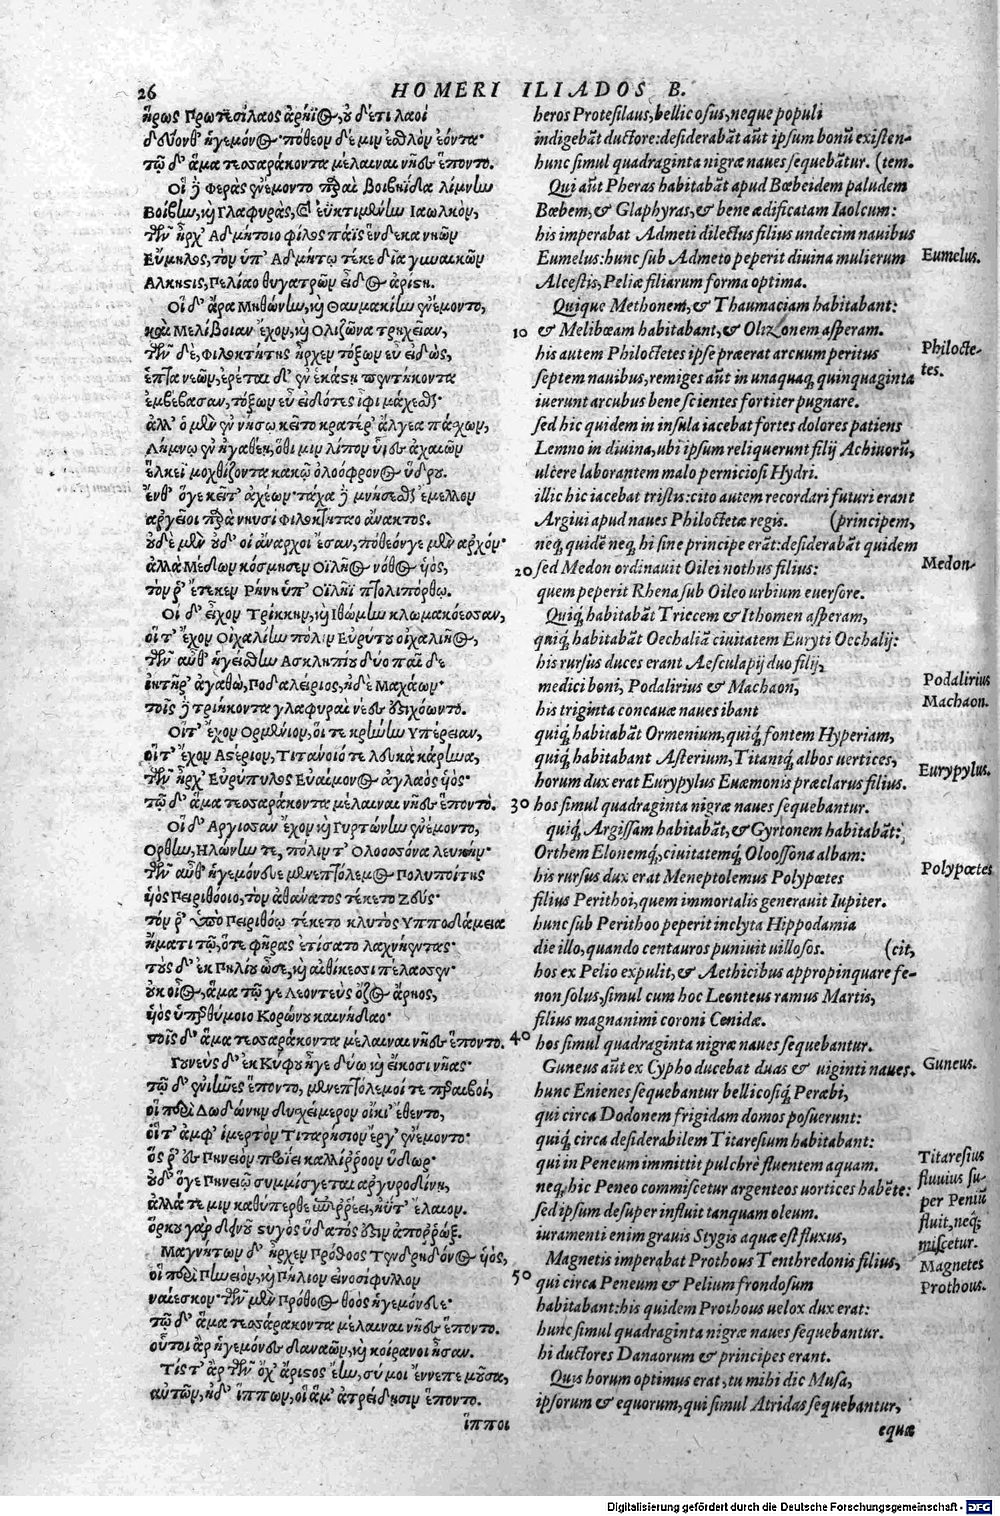 26
HOMERI ILIADOS B.
ἥρως Πρωτεσίλαος ἀρήϊος, οὐδ' ἔτι λαοί
δεύονθ' ἡγεμόνος· πόθεον δέ μιν ἐσθλὸν ἐόντα·
τῷ δ' ἅμα τεσσαράκοντα μέλαιναι νῆες ἕποντο.
Οἳ δὲ Φερὰς ἐνέμοντο παραὶ Βοιβηΐδα λίμνην
Βοίβην, καὶ Γλαφυράς, καὶ ἐϋκτιμένην Ιαωλκόν,
τῶν ἦρχ' Αδμήτοιο φίλος πάϊς ἕνδεκα νηῶν
Εὔμηλος, τὸν ὑπ' Αδμήτῳ τέκε δῖα γυναικῶν
Αλκηστις, Πελίαο θυγατρῶν εἶδος ἀρίστη.
Οἳ δ' ἄρα Μηθώνην, καὶ Θαυμακίην ἐνέμοντο,
καὶ Μελίβοιαν ἔχον, καὶ Ολιζῶνα τρηχεῖαν,
τῶν δὲ, Φιλοκτήτης ἦρχεν τόξων εὖ εἰδὼς,
ἑπτὰ νεῶν, ἐρέται δ' ἐν ἑκάστῃ πεντήκοντα
ἐμβέβασαν, τόξων εὖ εἰδότες ἶφι μάχεσθαι·
ἀλλ' ὁ μὲν ἐν νήσῳ κεῖτο κρατέρ' ἄλγεα πάσχων,
Λήμνῳ ἐν ἠγαθέῃ, ὅθι μιν λίπον υἷες ἀχαιῶν
ἕλκεϊ μοχθίζοντα κακῷ ὀλοόφρονος ὕδρου.
ἔνθ' ὅγε κεῖτ' ἀχέων· τάχα δὲ μνήσεσθαι ἔμελλον
ἀργεῖοι παρὰ νηυσὶ Φιλοκτήταο ἄνακτος.
οὐδὲ μὲν οὐδ' οἱ ἄναρχοι ἔσαν, πόθεόνγε μὲν ἀρχόν·
ἀλλὰ Μέδων κόσμησεν Οϊλῆος νόθος υἱὸς,
τόν ῥ' ἔτεκεν Ρήνη ὑπ' Οϊλῆϊ πτολιπόρθῳ.
Οἳ δ' εἶχον Τρίκκην, καὶ Ιθώμην κλωμακόεσσαν,
οἵ τ' ἔχον Οἰχαλίην πόλιν Εὐρύτου οἰχαλιῆος,
τῶν αὖθ' ἡγείσθην Ασκληπιοῦ δύο παῖδε
ἰητῆρ' ἀγαθὼ, Ποδαλείριος, ἠδὲ Μαχάων·
τοῖς δὲ τριήκοντα γλαφυραὶ νέες ἐστιχόωντο.
Οἵ τ' ἔχον Ορμένιον, οἵ τε κρήνην Υπέρειαν,
οἵ τ' ἔχον Αστέριον, Τιτάνοιό τε λευκὰ κάρηνα,
τῶν ἦρχ' Εὐρύπυλος Εὐαίμονος ἀγλαὸς υἱός·
τῷ δ' ἅμα τεσσαράκοντα μέλαιναι νῆες ἕποντο.
Οἳ δ' Αργισσαν ἔχον καὶ Γυρτώνην ἐνέμοντο,
Ορθην, Ηλώνην τε, πόλιν τ' Ολοοσσόνα λευκήν·
τῶν αὖθ' ἡγεμόνευε μενεπτόλεμος Πολυποίτης
υἱὸς Πειριθόοιο, τὸν ἀθάνατος τέκετο Ζεύς·
τόν ῥ' ὑπὸ Πειριθόῳ τέκετο κλυτὸς Υπποδάμεια
ἤματι τῷ, ὅτε φῆρας ἐτίσατο λαχνήεντας·
τοὺς δ' ἐκ Πηλίου ὦσε, καὶ αἰθίκεσσι πέλασσεν·
οὐκ οἶος, ἅμα τῷγε Λεοντεὺς ὄζος ἄρηος,
υἱὸς ὑπερθύμοιο Κορώνου καινείδαο·
τοῖς δ' ἅμα τεσσαράκοντα μέλαιναι νῆες ἕποντο.
Γουνεὺς δ' ἐκ Κύφου ἦγε δύω καὶ εἴκοσι νῆας·
τῷ δ' ἐνιῆνες ἕποντο, μενεπτόλεμοί τε περαιβοὶ,
οἳ περὶ Δωδώνην δυσχείμερον οἰκί' ἔθεντο,
οἵ τ' ἀμφ' ἱμερτὸν Τιταρήσιον ἔργ' ἐνέμοντο·
ὅς ῥ' ἐς Πηνειὸν προΐει καλλίῤῥοον ὕδωρ·
οὐδ' ὅγε Πηνειῷ συμμίσγεται ἀργυροδίνῃ,
ἀλλά τε μιν καθύπερθε ἐπιῤῥέει, ἠΰτ' ἔλαιον.
ὅρκου γὰρ δεινοῦ στυγὸς ὕδατός ἐστιν ἀποῤῥώξ.
Μαγνήτων δ' ἦρχεν Πρόθοος Τενθρηδόνος υἱὸς,
οἳ περὶ Πηνειὸν, καὶ Πήλιον εἰνοσίφυλλον
ναίεσκον· τῶν μὲν Πρόθοος θοὸς ἡγεμόνευε·
τῷ δ' ἅμα τεσσαράκοντα μέλαιναι νῆες ἕποντο.
οὗτοι ἄρ' ἡγεμόνες δαναῶν, καὶ κοίρανοι ἦσαν.
Τίς τ' ἂρ τῶν ὄχ' ἄριστος ἔην, σύ μοι ἔννεπε μοῦσα,
αὐτῶν, ἠδ' ἵππων, οἳ ἅμ' ἀτρείδῃσιν ἕποντο.
ἵπποι
heros Protesilaus, bellicosus, neque populi
indigebãt ductore: desiderabãt aũt ipsum bonũ existen-
hunc simul quadraginta nigræ naues sequebãtur. (tem.
Qui aũt Pheras habitabãt apud Bœbeidem paludem
Bœbem, & Glaphyras, & bene ædificatam Iaolcum:
his imperabat Admeti dilectus filius undecim nauibus
Eumelus: hunc sub Admeto peperit diuina mulierum
Alcestis, Peliæ filiarum forma optima.
Quique Methonem, & Thaumaciam habitabant:
10 & Melibœam habitabant, & Olizonem asperam.
his autem Philoctetes ipse præerat arcuum peritus
septem nauibus, remiges aũt in unaquaq; quinquaginta
iuerunt arcubus bene scientes fortiter pugnare.
sed hic quidem in insula iacebat fortes dolores patiens
Lemno in diuina, ubi ipsum reliquerunt filij Achiuorũ,
ulcere laborantem malo perniciosi Hydri.
illic hic iacebat tristis: cito autem recordari futuri erant
Argiui apud naues Philoctetæ regis. (principem,
neq; quidẽ neq; hi sine principe erãt: desiderabãt quidem
20 sed Medon ordinauit Oilei nothus filius:
quem peperit Rhena sub Oileo urbium euersore.
Quiq; habitabãt Triccem & Ithomen asperam,
quiq; habitabãt Oechaliã ciuitatem Euryti Oechalij:
his rursus duces erant Aesculapij duo filij,
medici boni, Podalirius & Machaon,
his triginta concauæ naues ibant
quiq; habitabãt Ormenium, quiq; fontem Hyperiam,
quiq; habitabant Asterium, Titaniq; albos uertices,
horum dux erat Eurypylus Euæmonis præclarus filius.
30 hos simul quadraginta nigræ naues sequebantur.
quiq; Argissam habitabãt, & Gyrtonem habitabãt:
Orthem Elonemq;, ciuitatemq; Oloossona albam:
his rursus dux erat Meneptolemus Polypœtes
filius Perithoi, quem immortalis generauit Iupiter.
hunc sub Perithoo peperit inclyta Hippodamia
die illo, quando centauros puniuit uillosos. (cit,
hos ex Pelio expulit, & Aethicibus appropinquare fe-
non solus, simul cum hoc Leonteus ramus Martis,
filius magnanimi coroni Cenidæ.
40 hos simul quadraginta nigræ naues sequebantur.
Guneus aũt ex Cypho ducebat duas & uiginti naues.
hunc Enienes sequebantur bellicosiq; Peræbi,
qui circa Dodonem frigidam domos posuerunt:
quiq; circa desiderabilem Titaresium habitabant:
qui in Peneum immittit pulchrè fluentem aquam.
neq; hic Peneo commiscetur argenteos uortices habẽte:
sed ipsum desuper influit tanquam oleum.
iuramenti enim grauis Stygis aquæ est fluxus,
Magnetis imperabat Prothous Tenthredonis filius,
50 qui circa Peneum & Pelium frondosum
habitabant: his quidem Prothous uelox dux erat:
hunc simul quadraginta nigræ naues sequebantur.
hi ductores Danaorum & principes erant.
Quis horum optimus erat, tu mihi dic Musa,
ipsorum & equorum, qui simul Atridas sequebantur,
equæ
Eumelus.
Philocte-
tes.
Medon.
Podalirius
Machaon.
Eurypylus.
Polypœtes
Guneus.
Titaresius
fluuius su-
per Peniũ
fluit, neq;
miscetur.
Magnetes
Prothous.
Digitalisierung gefördert durch die Deutsche Forschungsgemeinschaft - DFG